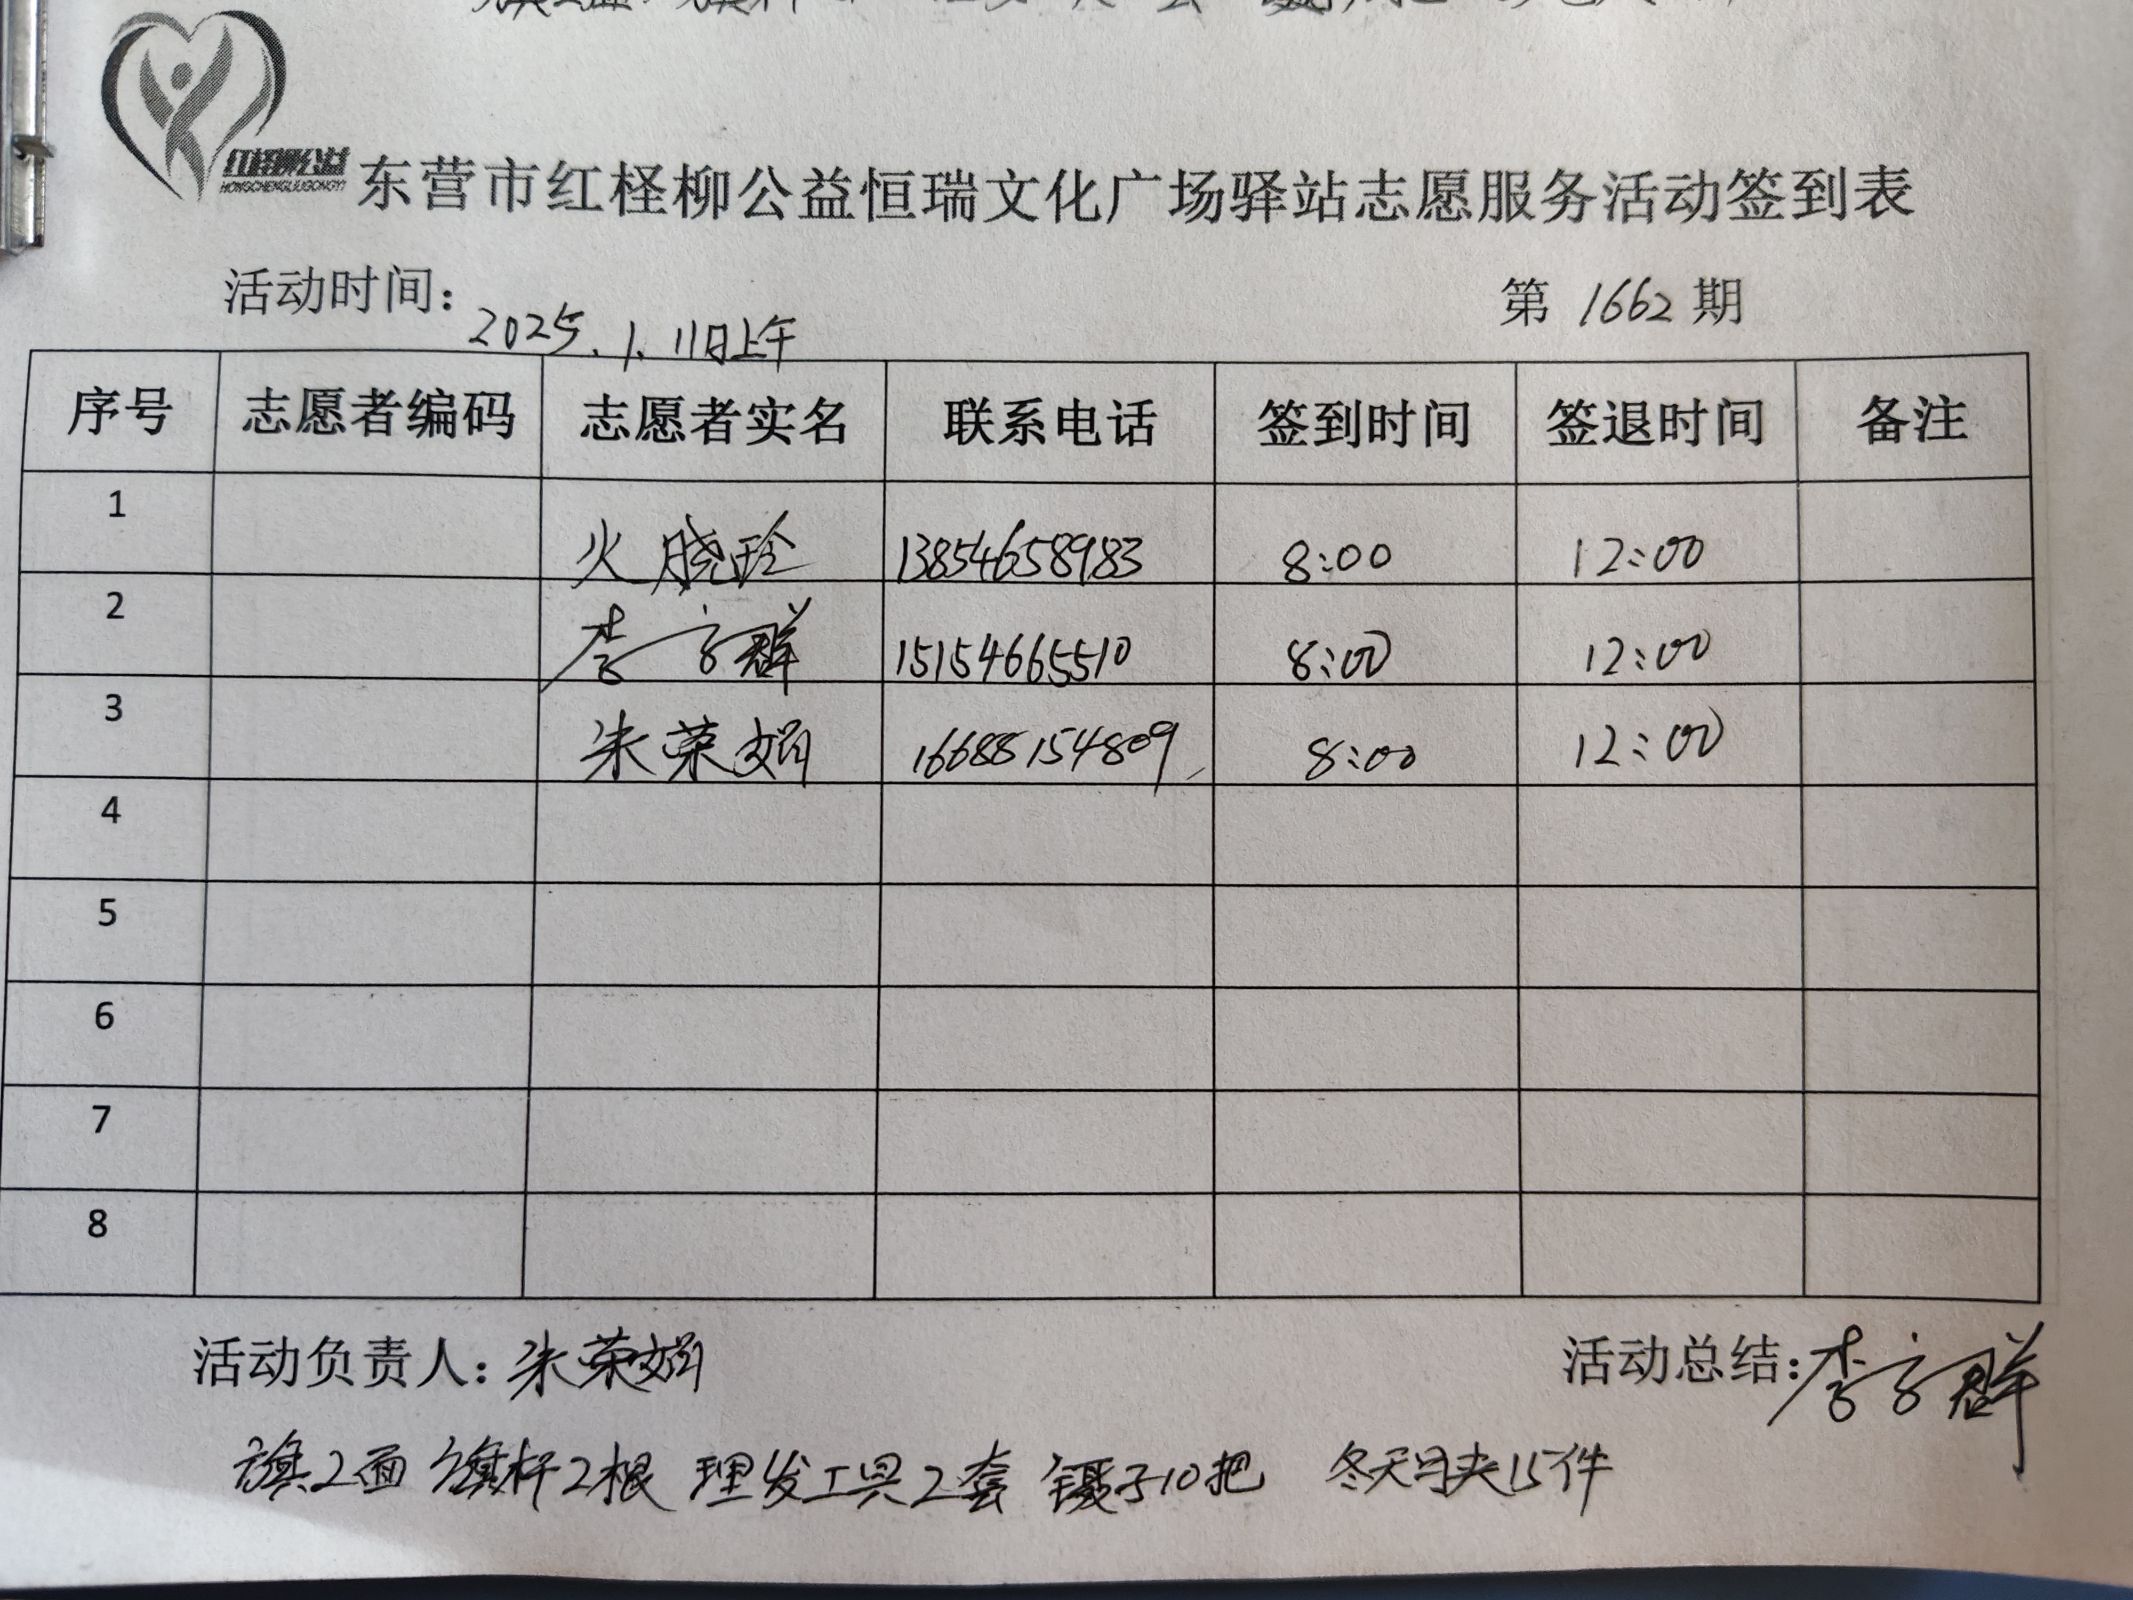 红柽柳公益
HONGCHENGLIUGONGYI
东营市红柽柳公益恒瑞文化广场驿站志愿服务活动签到表
活动时间：2025.1.11日上午 第 1662 期
序号 志愿者编码 志愿者实名 联系电话 签到时间 签退时间 备注
1 火晓玲 13854658983 8:00 12:00
2 李言群 15154665510 8:00 12:00
3 朱荣娟 16688154809 8:00 12:00
4
5
6
7
8
活动负责人：朱荣娟 活动总结：李言群
旗2面 旗杆2根 理发工具2套 镊子10把 冬天马夹15件